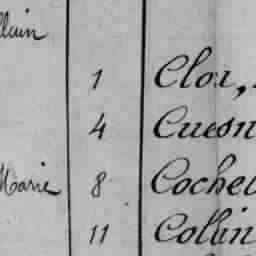 llain
1 Cloa,
4 Cuesn
Marie 8 Coche
11 Collin